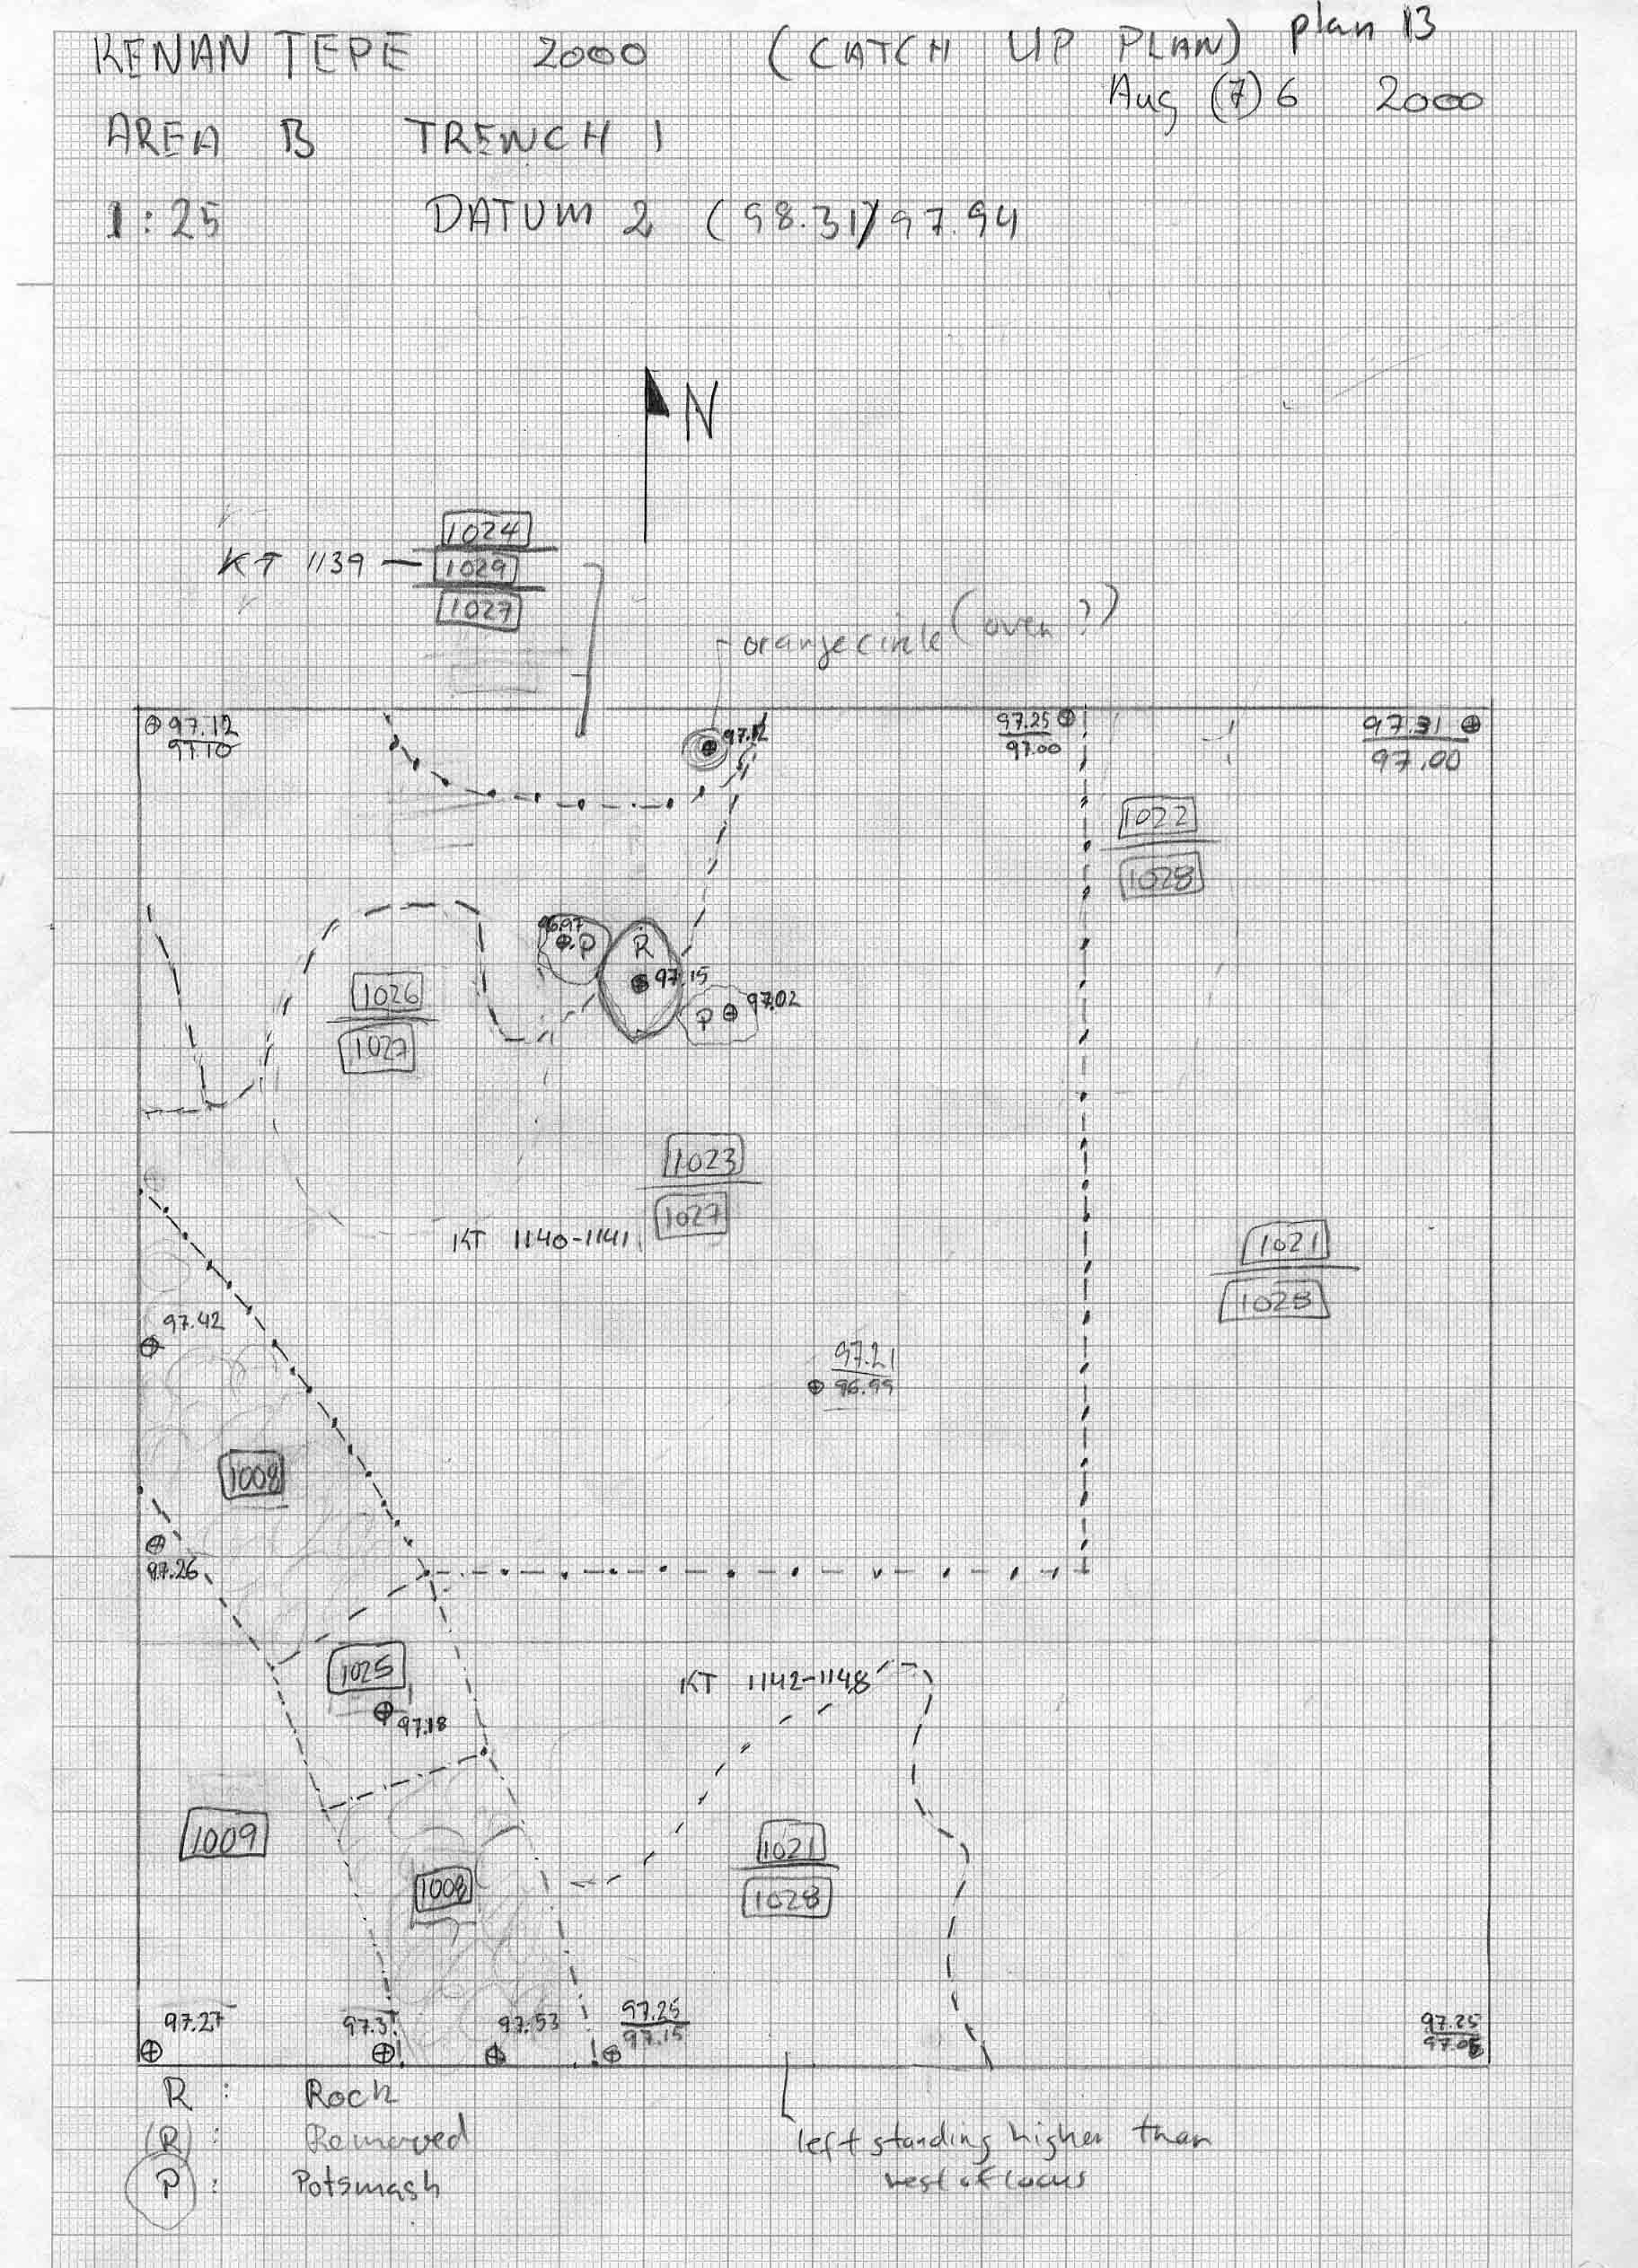 KENAN TEPE 2000 (CATCH UP PLAN) plan 13
Aug (7) 6 2000
AREA B TRENCH 1
1:25 DATUM 2 (98.31) 97.94
N
1024
KT 1139 — 1029
1027
orange circle (oven ?)
97.12
97.10
97.12
97.25
97.00
97.31
97.00
1022
1028
96.97
P
R
97.15
P
97.02
1026
1027
1023
1027
KT 1140-1141
1021
1028
97.42
97.21
96.99
1008
97.26
1025
97.18
KT 1142-1148
1009
1008
1021
1028
97.27
97.31
97.53
97.25
97.15
97.25
R : Rock
(R) : Removed
P : Potsmash
left standing higher than
rest of locus